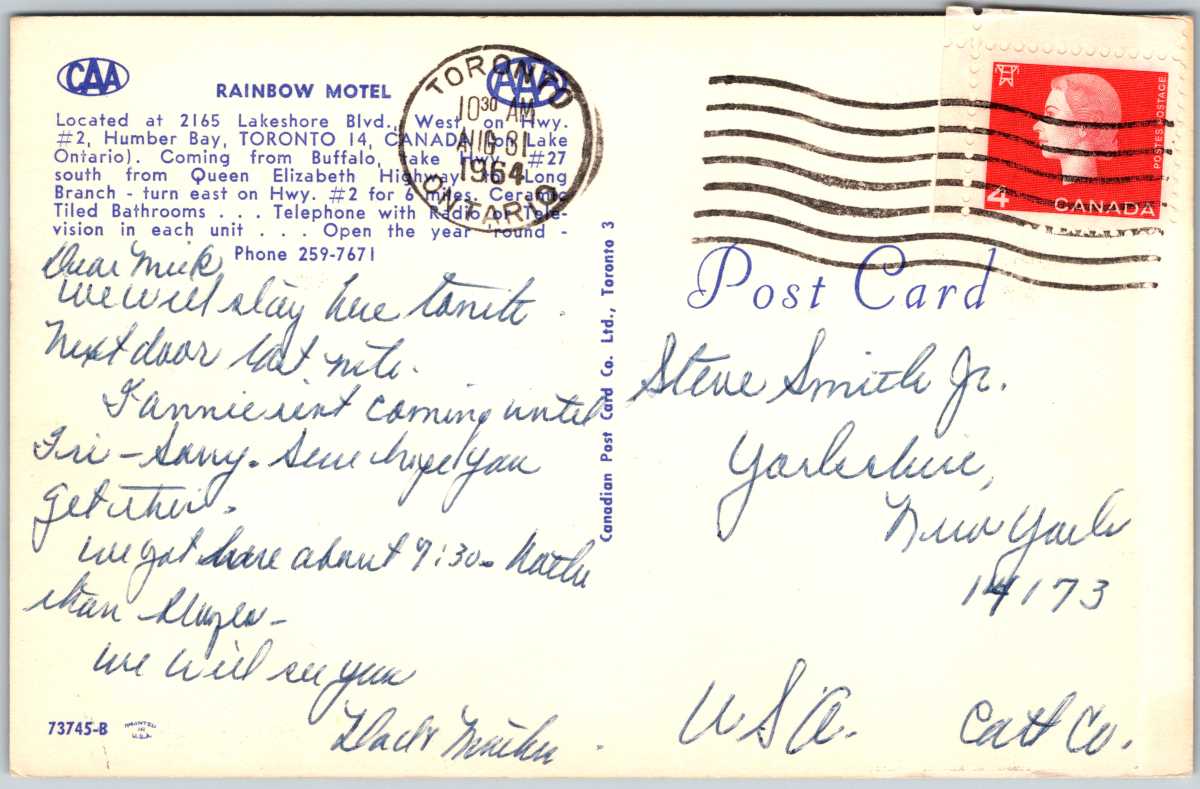 CAA
RAINBOW MOTEL
AAA
Located at 2165 Lakeshore Blvd., West on Hwy.
#2, Humber Bay, TORONTO 14, CANADA (on Lake
Ontario). Coming from Buffalo, take Hwy. #27
south from Queen Elizabeth Highway to Long
Branch - turn east on Hwy. #2 for 6 miles. Ceramic
Tiled Bathrooms . . . Telephone with Radio or Tele-
vision in each unit . . . Open the year round -
Phone 259-7671
Dear Mick
We will stay here tonite.
Next door last nite.
Fannie isnt coming until
Fri - Sorry. Sure hope you
get
We got here about 9:30-
than
We will see you
Dad & Mother.
73745-B
PRINTED
IN
U.S.A.
Canadian Post Card Co. Ltd., Toronto 3
TORONTO
10 30 AM
AUG 31
1964
ONTARIO
POSTES POSTAGE
4
CANADA
Post Card
Steve Smith Jr.
Yorkshire,
New York
14173
USA.
Catt Co.